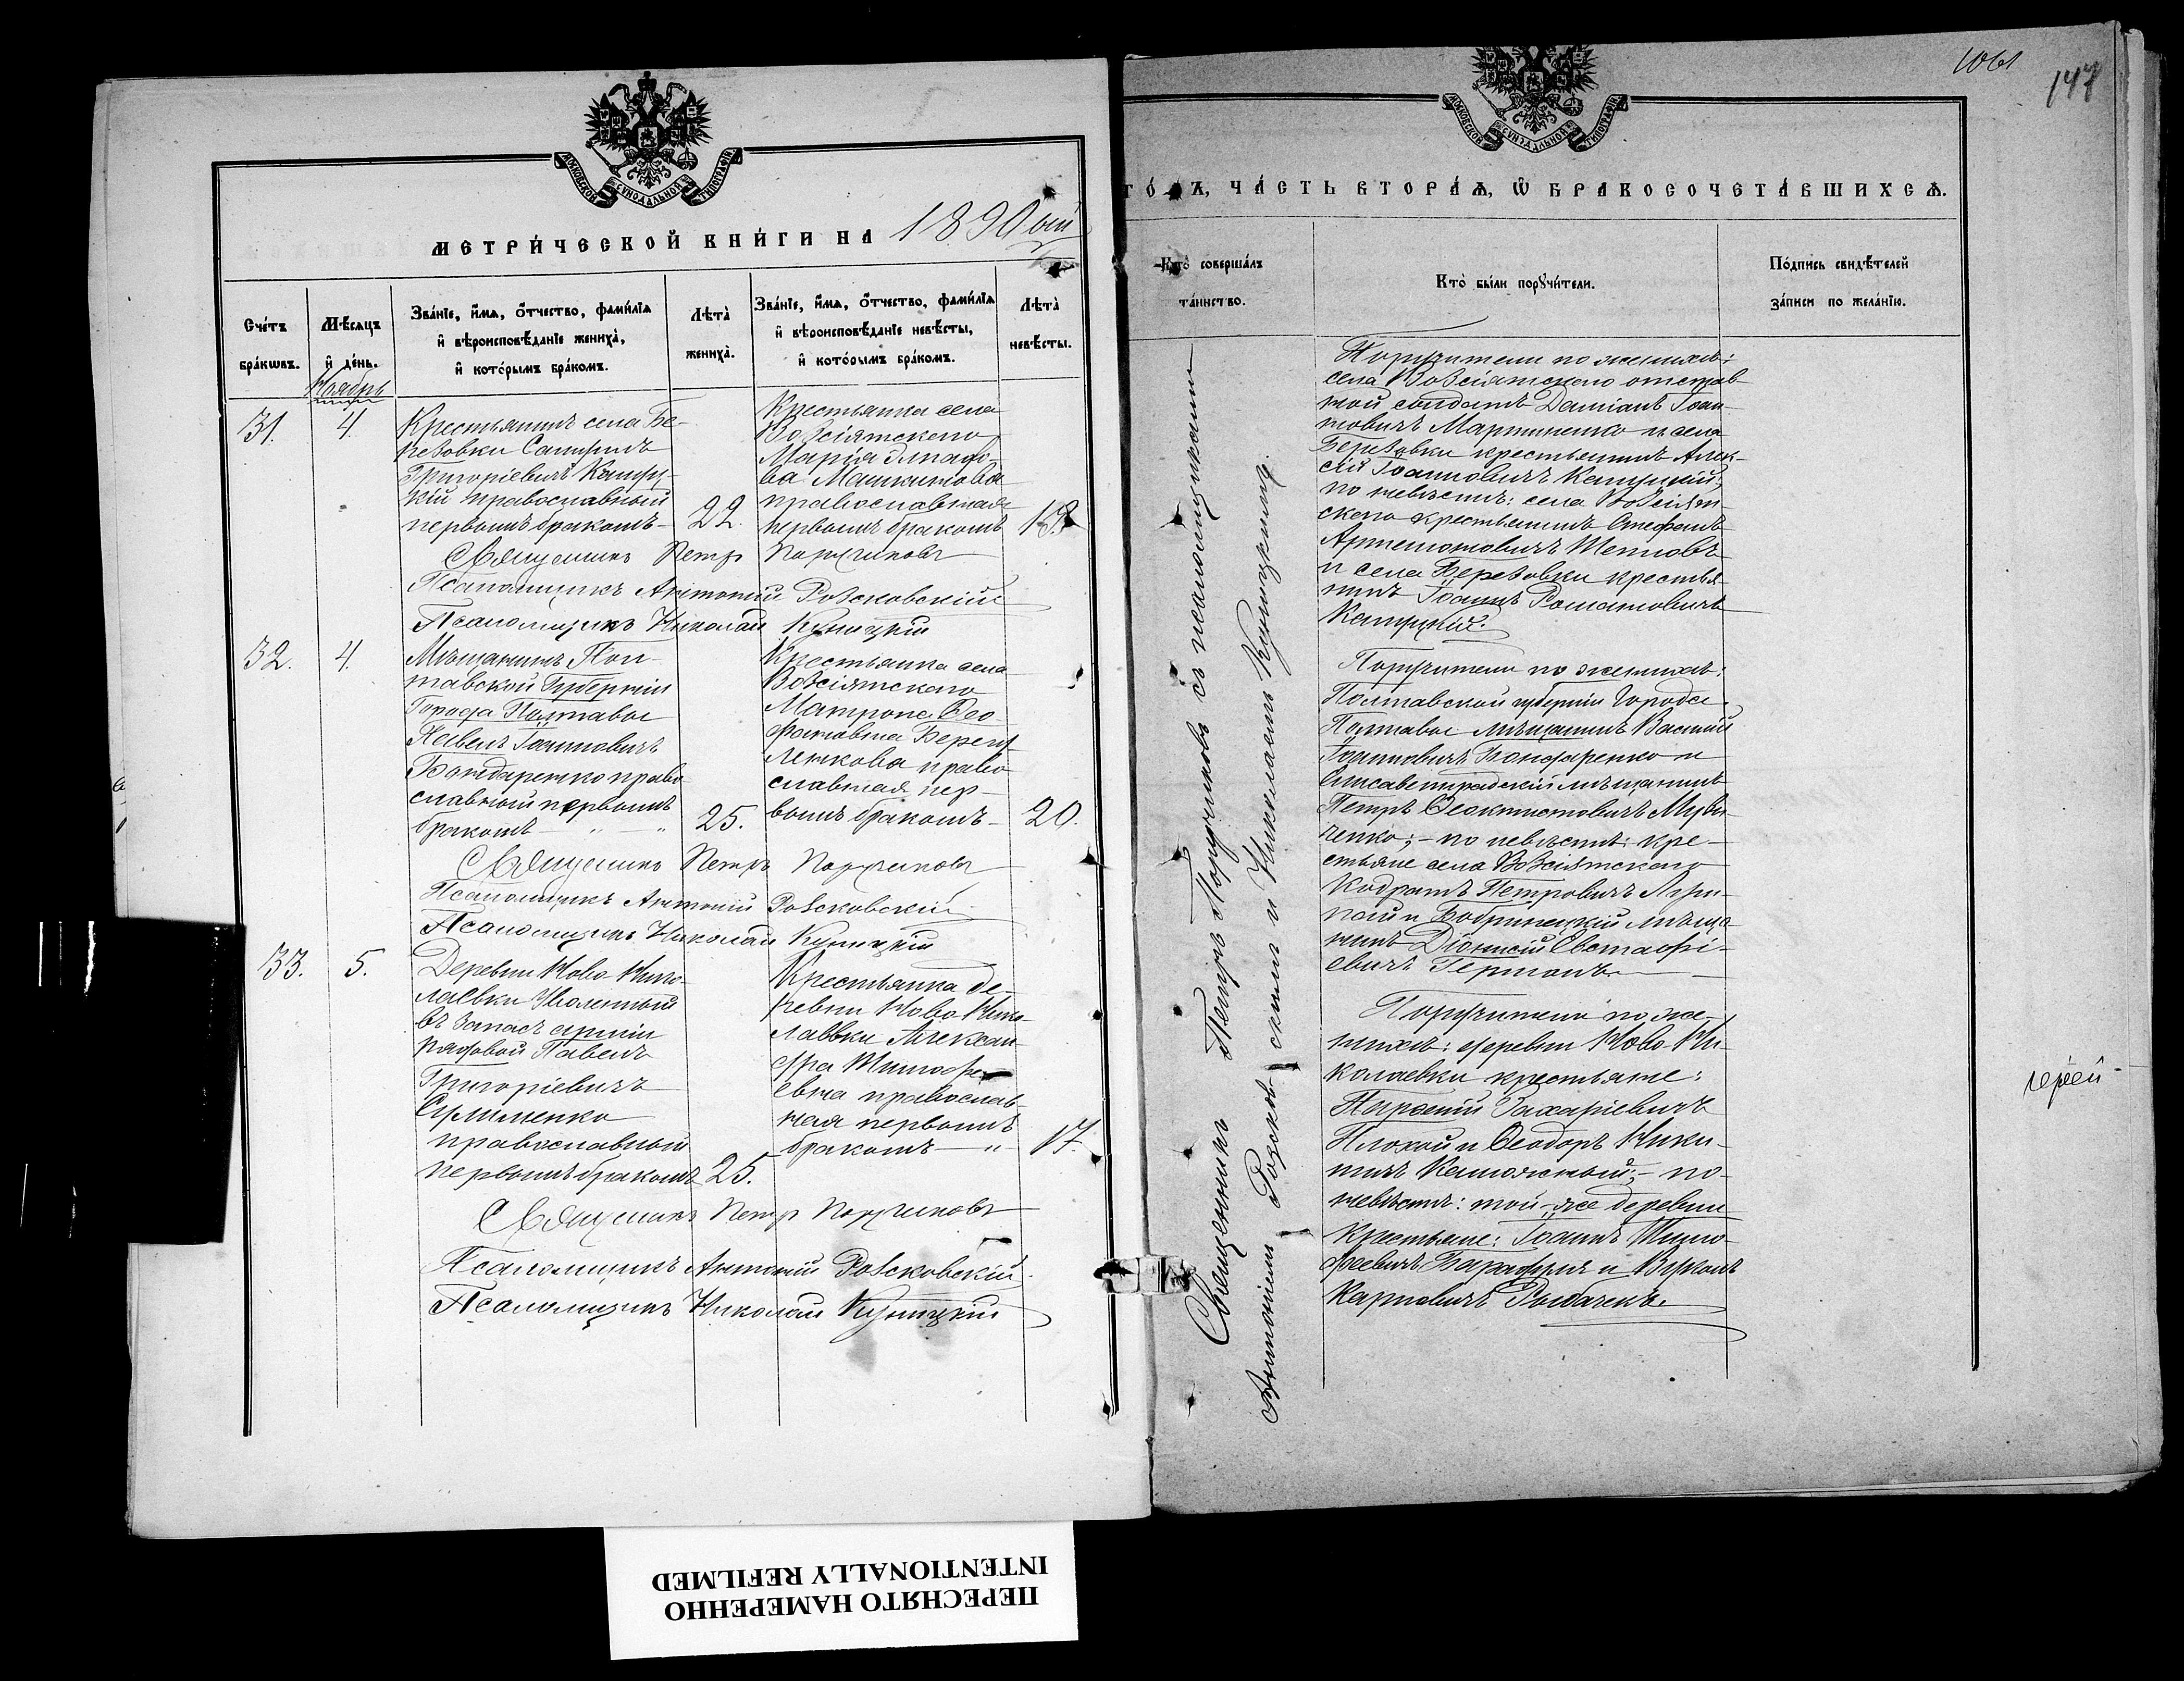 МОСКОВСКОЙ СѴНОДАЛЬНОЙ ТИПОГРАФІИ
МЕТРИ́ЧЕСКОЙ КНИ́ГИ НА 1890 ый
Сче́тъ бра́кѡвъ.
Мѣ́сяцъ и҆ де́нь.
Зва́нїе, и҆́мѧ, ѻ҆́тчество, фами́лїѧ
и҆ вѣроисповѣ́данїе жениха̀,
и҆ кото́рымъ бра́комъ.
Лѣ́та̀ жениха̀.
Зва́нїе, и҆́мѧ, ѻ҆́тчество, фами́лїѧ
и҆ вѣроисповѣ́данїе невѣ́сты,
и҆ кото́рымъ бра́комъ.
Лѣ́та̀ невѣ́сты.
Ноябрь
31.
4.
Крестьянинъ села Бе-
резовки
Григоріевичъ Капуц-
кій православный
первымъ бракомъ
22.
Крестьянка села
Возсіятскаго
Марія
православная
первымъ бракомъ
18.
Священникъ Петр Поручиковъ
Псаломщикъ Антоній Розсковскій
Псаломщикъ Николай Куницкій
32.
4.
Мѣщанинъ Пол-
тавской Губерніи
Города Полтавы
Павелъ Іоанновичъ
Бондаренко право
славный первымъ
бракомъ
25.
Крестьянка села
Возсіятскаго
Матрона Ѳео-

православ
славная пер-
вымъ бракомъ
20.
Священникъ Петръ Поручиковъ
Псаломщикъ Антоній Розсковскій
Псаломщикъ Николай Куницкій
33.
5.
Деревни Ново-Нико-
лаевки Уволенный
въ запасъ арміи
рядовой Павелъ
Григоріевичъ
православный
первымъ бракомъ
25.
Крестьянка де-
ревни Ново-Нико-
лаевки Алексан-
дра Тимофе-
евна православ-
ная первымъ
бракомъ
17.
Священникъ Петр Поручиковъ
Псаломщикъ Антоній Розсковскій
Псаломщикъ Николай Куницкій
1061
147
МОСКОВСКОЙ СѴНОДАЛЬНОЙ ТИПОГРАФІИ
ГО́ДЪ, ЧА́СТЬ ВТОРА́Ѧ, Ѡ҆ БРАКОСОЧЕТА́ВШИХСѦ.
Кто̀ соверша́лъ
та́инство.
Кто̀ бы́ли порꙋчи́тели.
По́дпись свидѣ́телей
за́писи по жела́нїю.
Священникъ Петръ Поручиковъ съ псаломщиками
Антоніемъ Розсковскимъ и Николаемъ Куницкимъ.
Поручители по женихѣ:
села Возсіятскаго отстав
ной солдатъ Даміанъ Іоан-
новичъ Мартиненко и села
Березовки крестьянинъ Алек-
сій Іоанновичъ Капуцкій;
по невѣстѣ: села Возсіят-
скаго крестьянинъ Стефанъ
Артемоновичъ
и села Березовки крестья-
нинъ Іоаннъ Романовичъ
Капуцкій.
Поручители по женихѣ:
Полтавской губерніи Города
Полтавы мѣщанинъ Василій
Іоанновичъ Бондаренко и
Елисаветградскій мѣщанинъ
Петръ Ѳеоктистовичъ
ченко; - по невѣстѣ: кре-
стьяне села Возсіятскаго
Кодратъ Петровичъ
и Бобринецкій мѣща-
нинъ Діонисій Евстафі-
евичъ Германъ.
Поручители по же-
нихѣ: деревни Ново-Ни-
колаевки крестьяне:
Захаріевичъ
Плохой и Ѳеодоръ Ники-
тичъ - по
невѣстѣ: той-же деревни
крестьяне: Іоаннъ Тимо-
феевичъ и
Карповичъ
іерей
ПЕРЕСНЯТО НАМЕРЕННО
INTENTIONALLY REFILMED